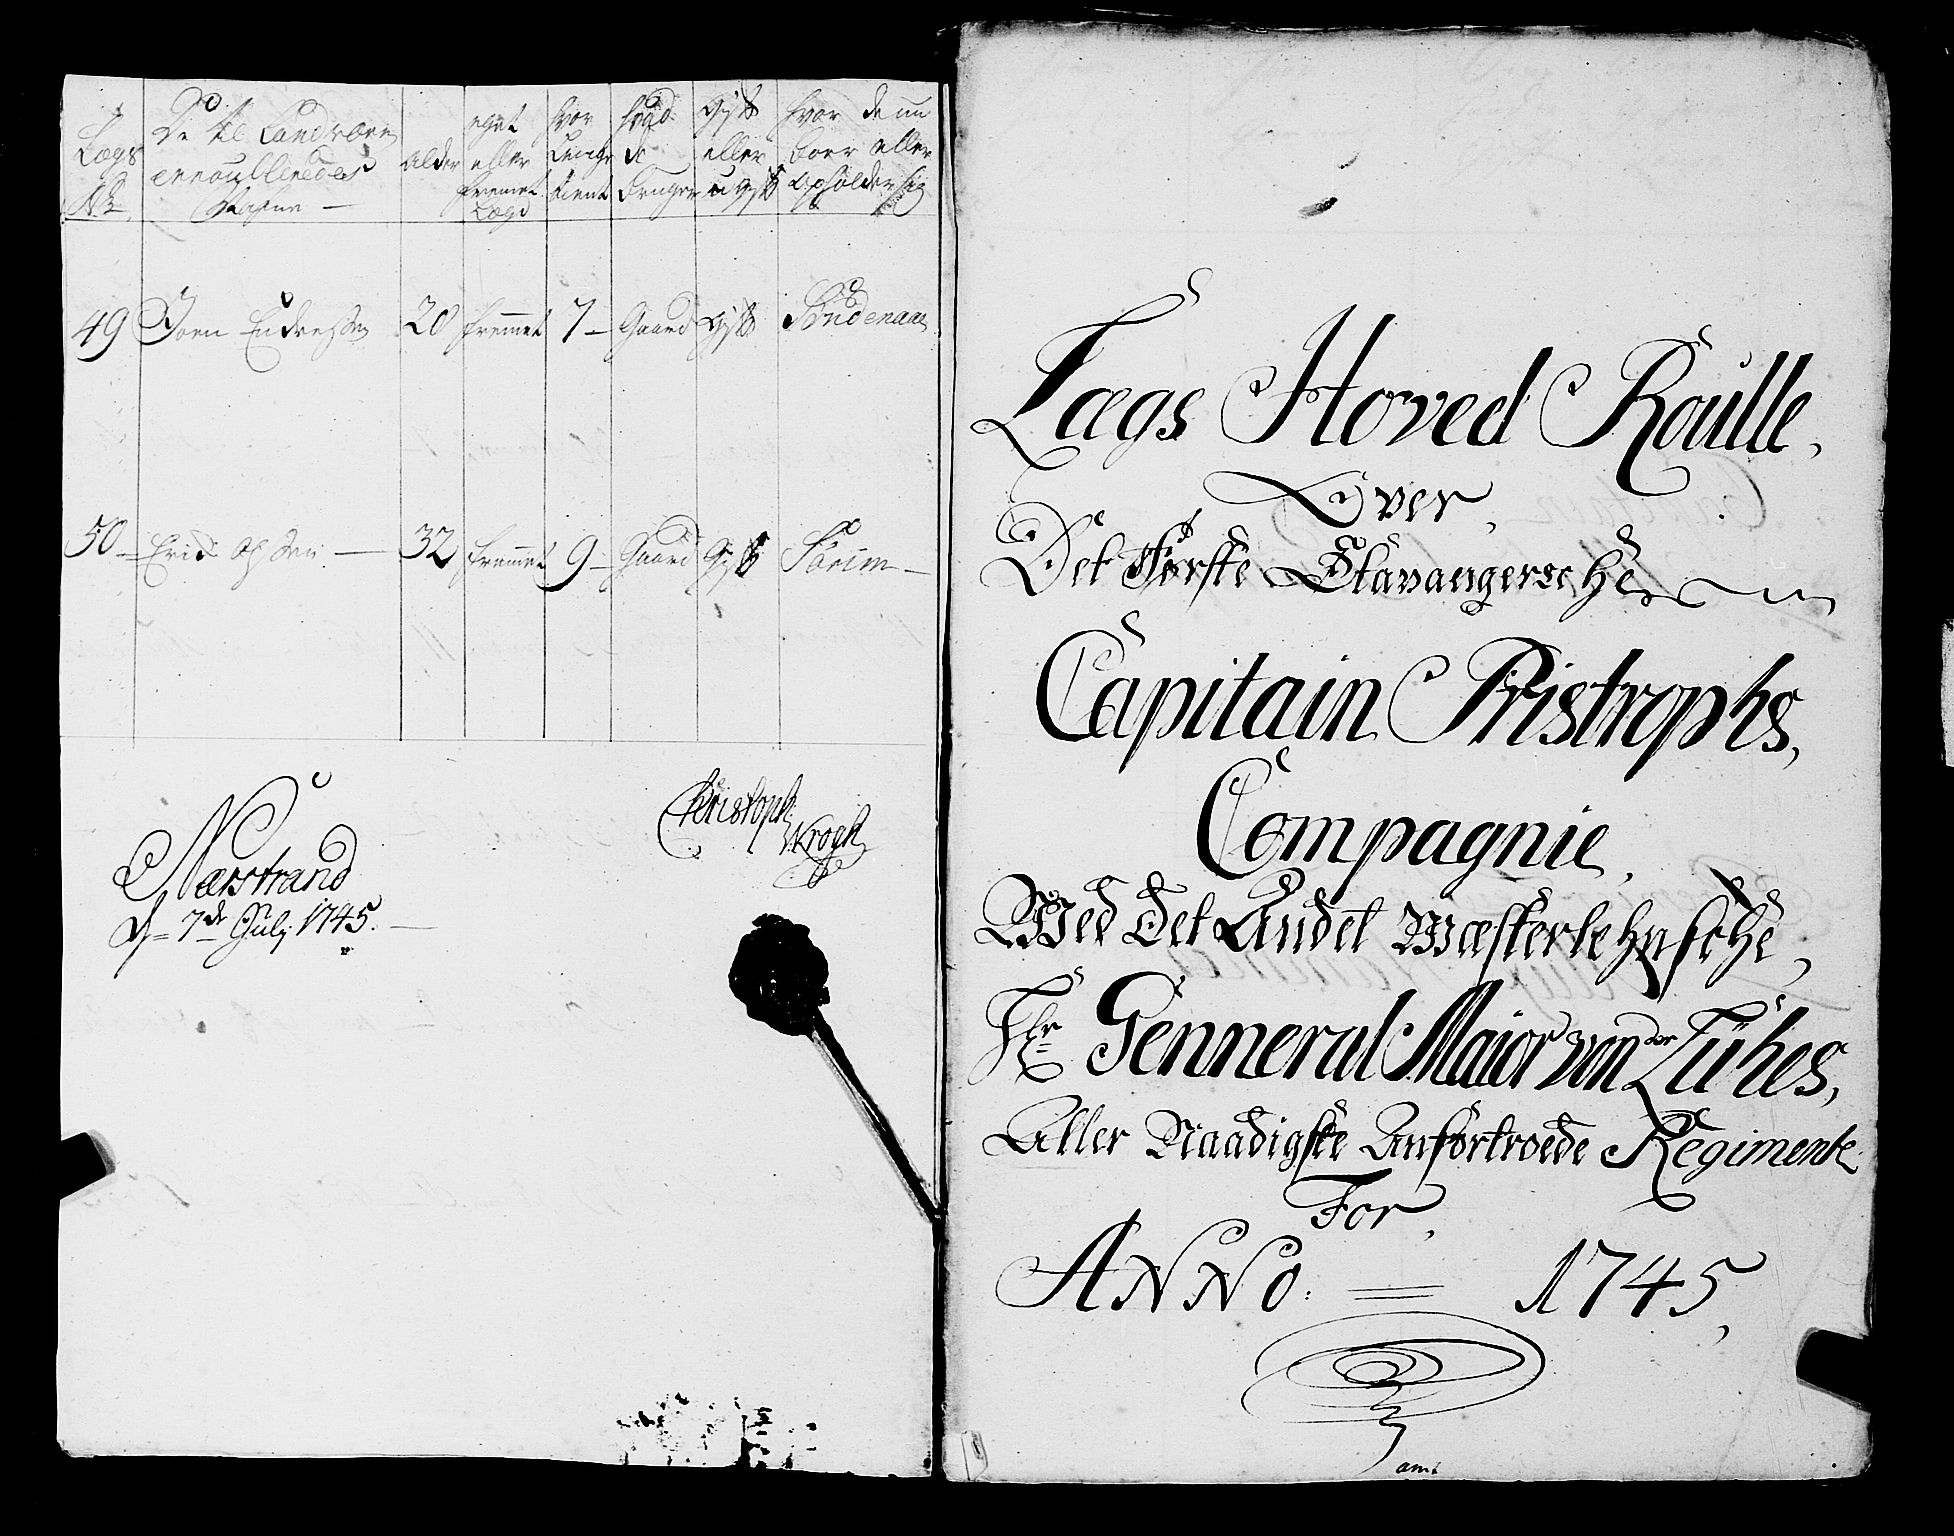 Lægs No
De til Landværn enroulleredes Nafne —
Alder
eget eller fremmet Lægd
hvor Længe tient
hvad de bruger
Gift eller ugift
hvor de nu boer eller opholder sig
49 Joen Endressen 20 fremmet 7 — Gaard Gift Søndenaae
50 — Erich — 32 fremmet 9 — Gaard Gift —
Christoph Krogh
Nærstrand
d = 7de Julj 1745. —
Lægs Hoved Roulle,
Over,
Det Første Stavangersche
Capitain Pristrophs,
Compagnie,
Wed Det Andet Westerlehnsche,
Hr Genneral Maior von der Lühes,
Aller Naadigste Anfortroede Regimente
For,
ANNO. = 1745,
amt